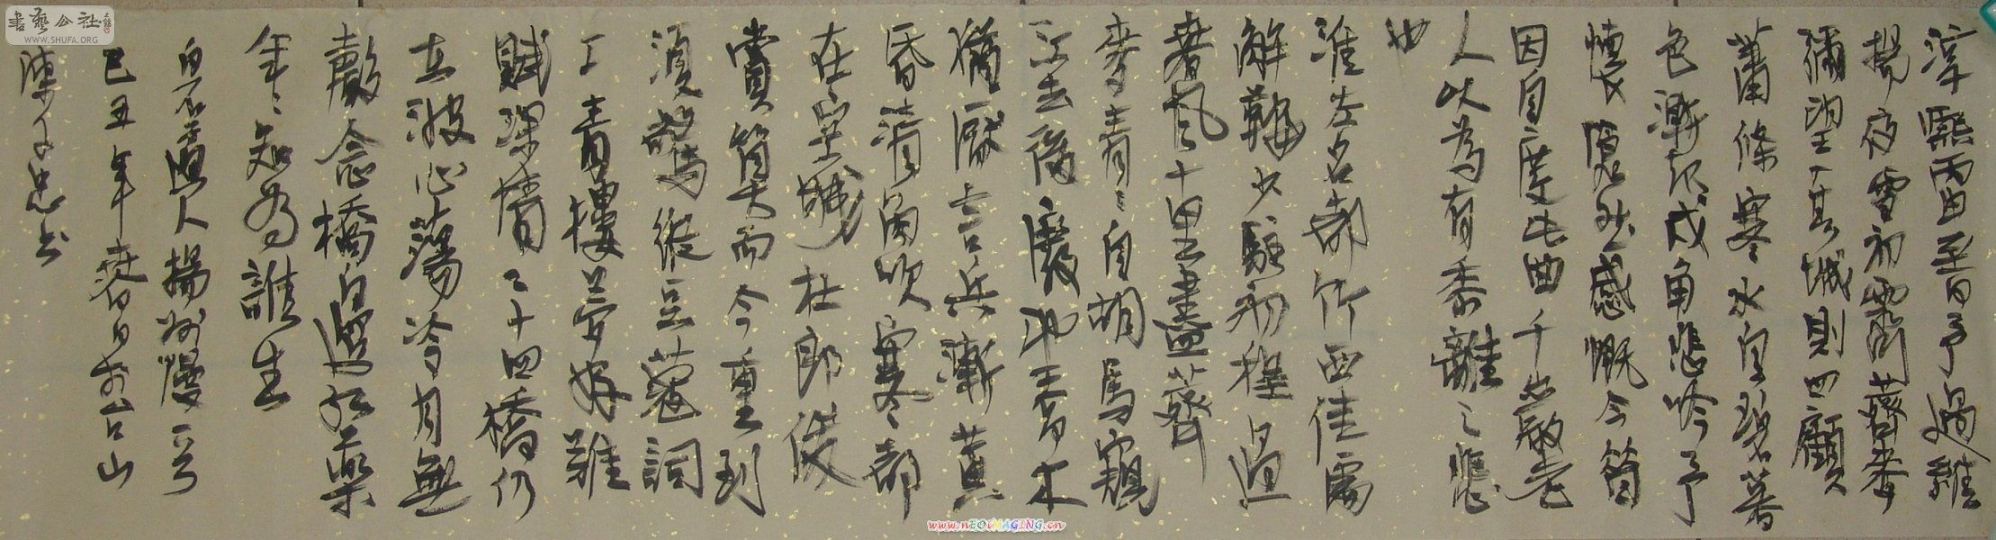 書藝公社
WWW.SHUFA.ORG
淳熙丙申至日予過維
揚夜雪初霽薺麥
彌望入其城則四顧
蕭條寒水自碧暮
色漸起戍角悲吟予
懷愴然感慨今昔
因自度此曲千岩老
人以為有黍離之悲
也
淮左名都竹西佳處
解鞍少駐初程過
春風十里盡薺
麥青〻自胡馬窺
江去後廢池喬木
猶厭言兵漸黃
昏清角吹寒都
在空城杜郎俊
賞算而今重到
須驚縱豆蔻詞
工青樓夢好難
賦深情二十四橋仍
在波心蕩冷月無
聲念橋邊紅藥
年〻知為誰生
白石道人揚州慢一首
己丑年春日於台山
陳子忠書
www.nEOiMAGING.cn